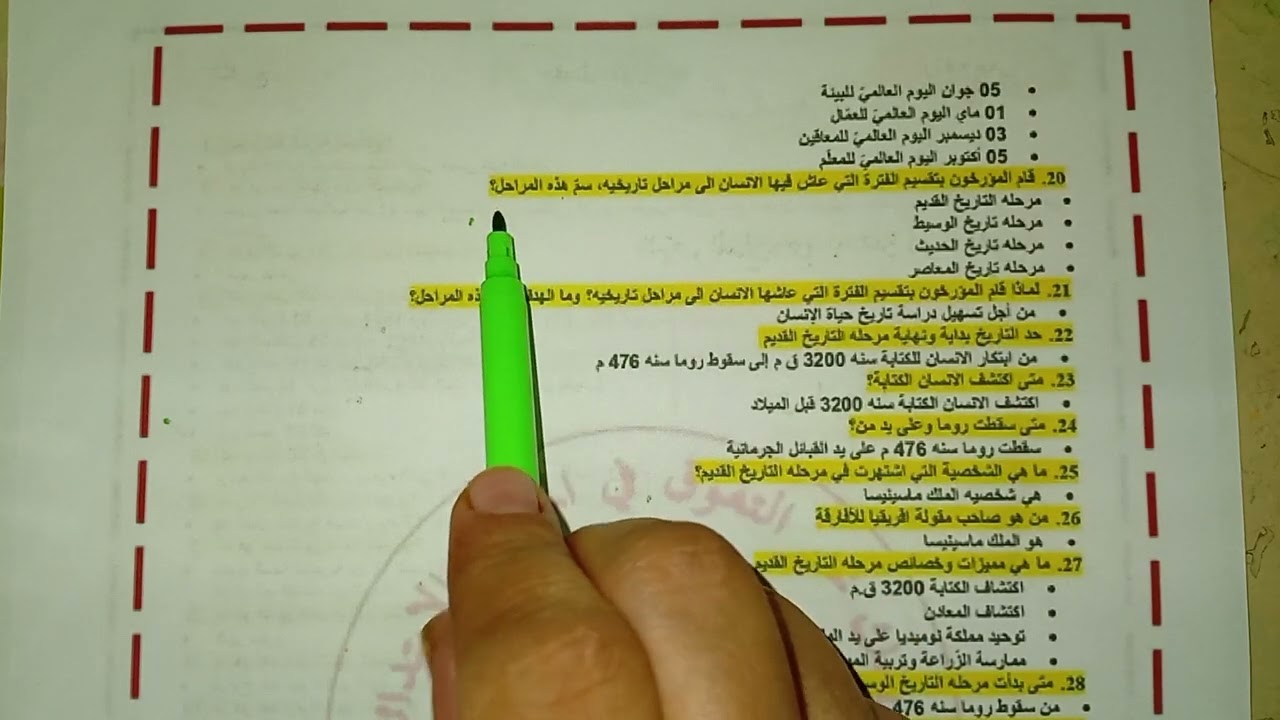 05 جوان اليوم العالميّ للبيئة
01 ماي اليوم العالميّ للعمّال
03 ديسمبر اليوم العالميّ للمعاقين
05 أكتوبر اليوم العالميّ للمعلّم
20. قام المؤرخون بتقسيم الفترة التي عاش فيها الانسان الى مراحل تاريخيه، سمّ هذه المراحل؟
مرحله التاريخ القديم
مرحله تاريخ الوسيط
مرحله تاريخ الحديث
مرحله تاريخ المعاصر
21. لماذا قام المؤرخون بتقسيم الفترة التي عاشها الانسان الى مراحل تاريخيه؟ وما المراحل؟
من أجل تسهيل دراسة تاريخ حياة الإنسان
22. حد التاريخ بداية ونهاية مرحله التاريخ القديم
من ابتكار الانسان للكتابة سنه 3200 ق م إلى سقوط روما سنه 476 م
23. متى اكتشف الانسان الكتابة؟
اكتشف الانسان الكتابة سنه 3200 قبل الميلاد
24. متى سقطت روما وعلى يد من؟
سقطت روما سنه 476 م على يد القبائل الجرمانية
25. ما هي الشخصية التي اشتهرت في مرحله التاريخ القديم؟
هي شخصيه الملك ماسينيسا
26. من هو صاحب مقولة افريقيا للأفارقة
هو الملك ماسينيسا
27. ما هي مميزات وخصائص مرحله التاريخ القديم
اكتشاف الكتابة 3200 ق.م
اكتشاف المعادن
توحيد مملكة نوميديا على يد
ممارسة الزّراعة وتربية
28. متى بدأت مرحله التاريخ
من سقوط روما سنه 476
التفوق في